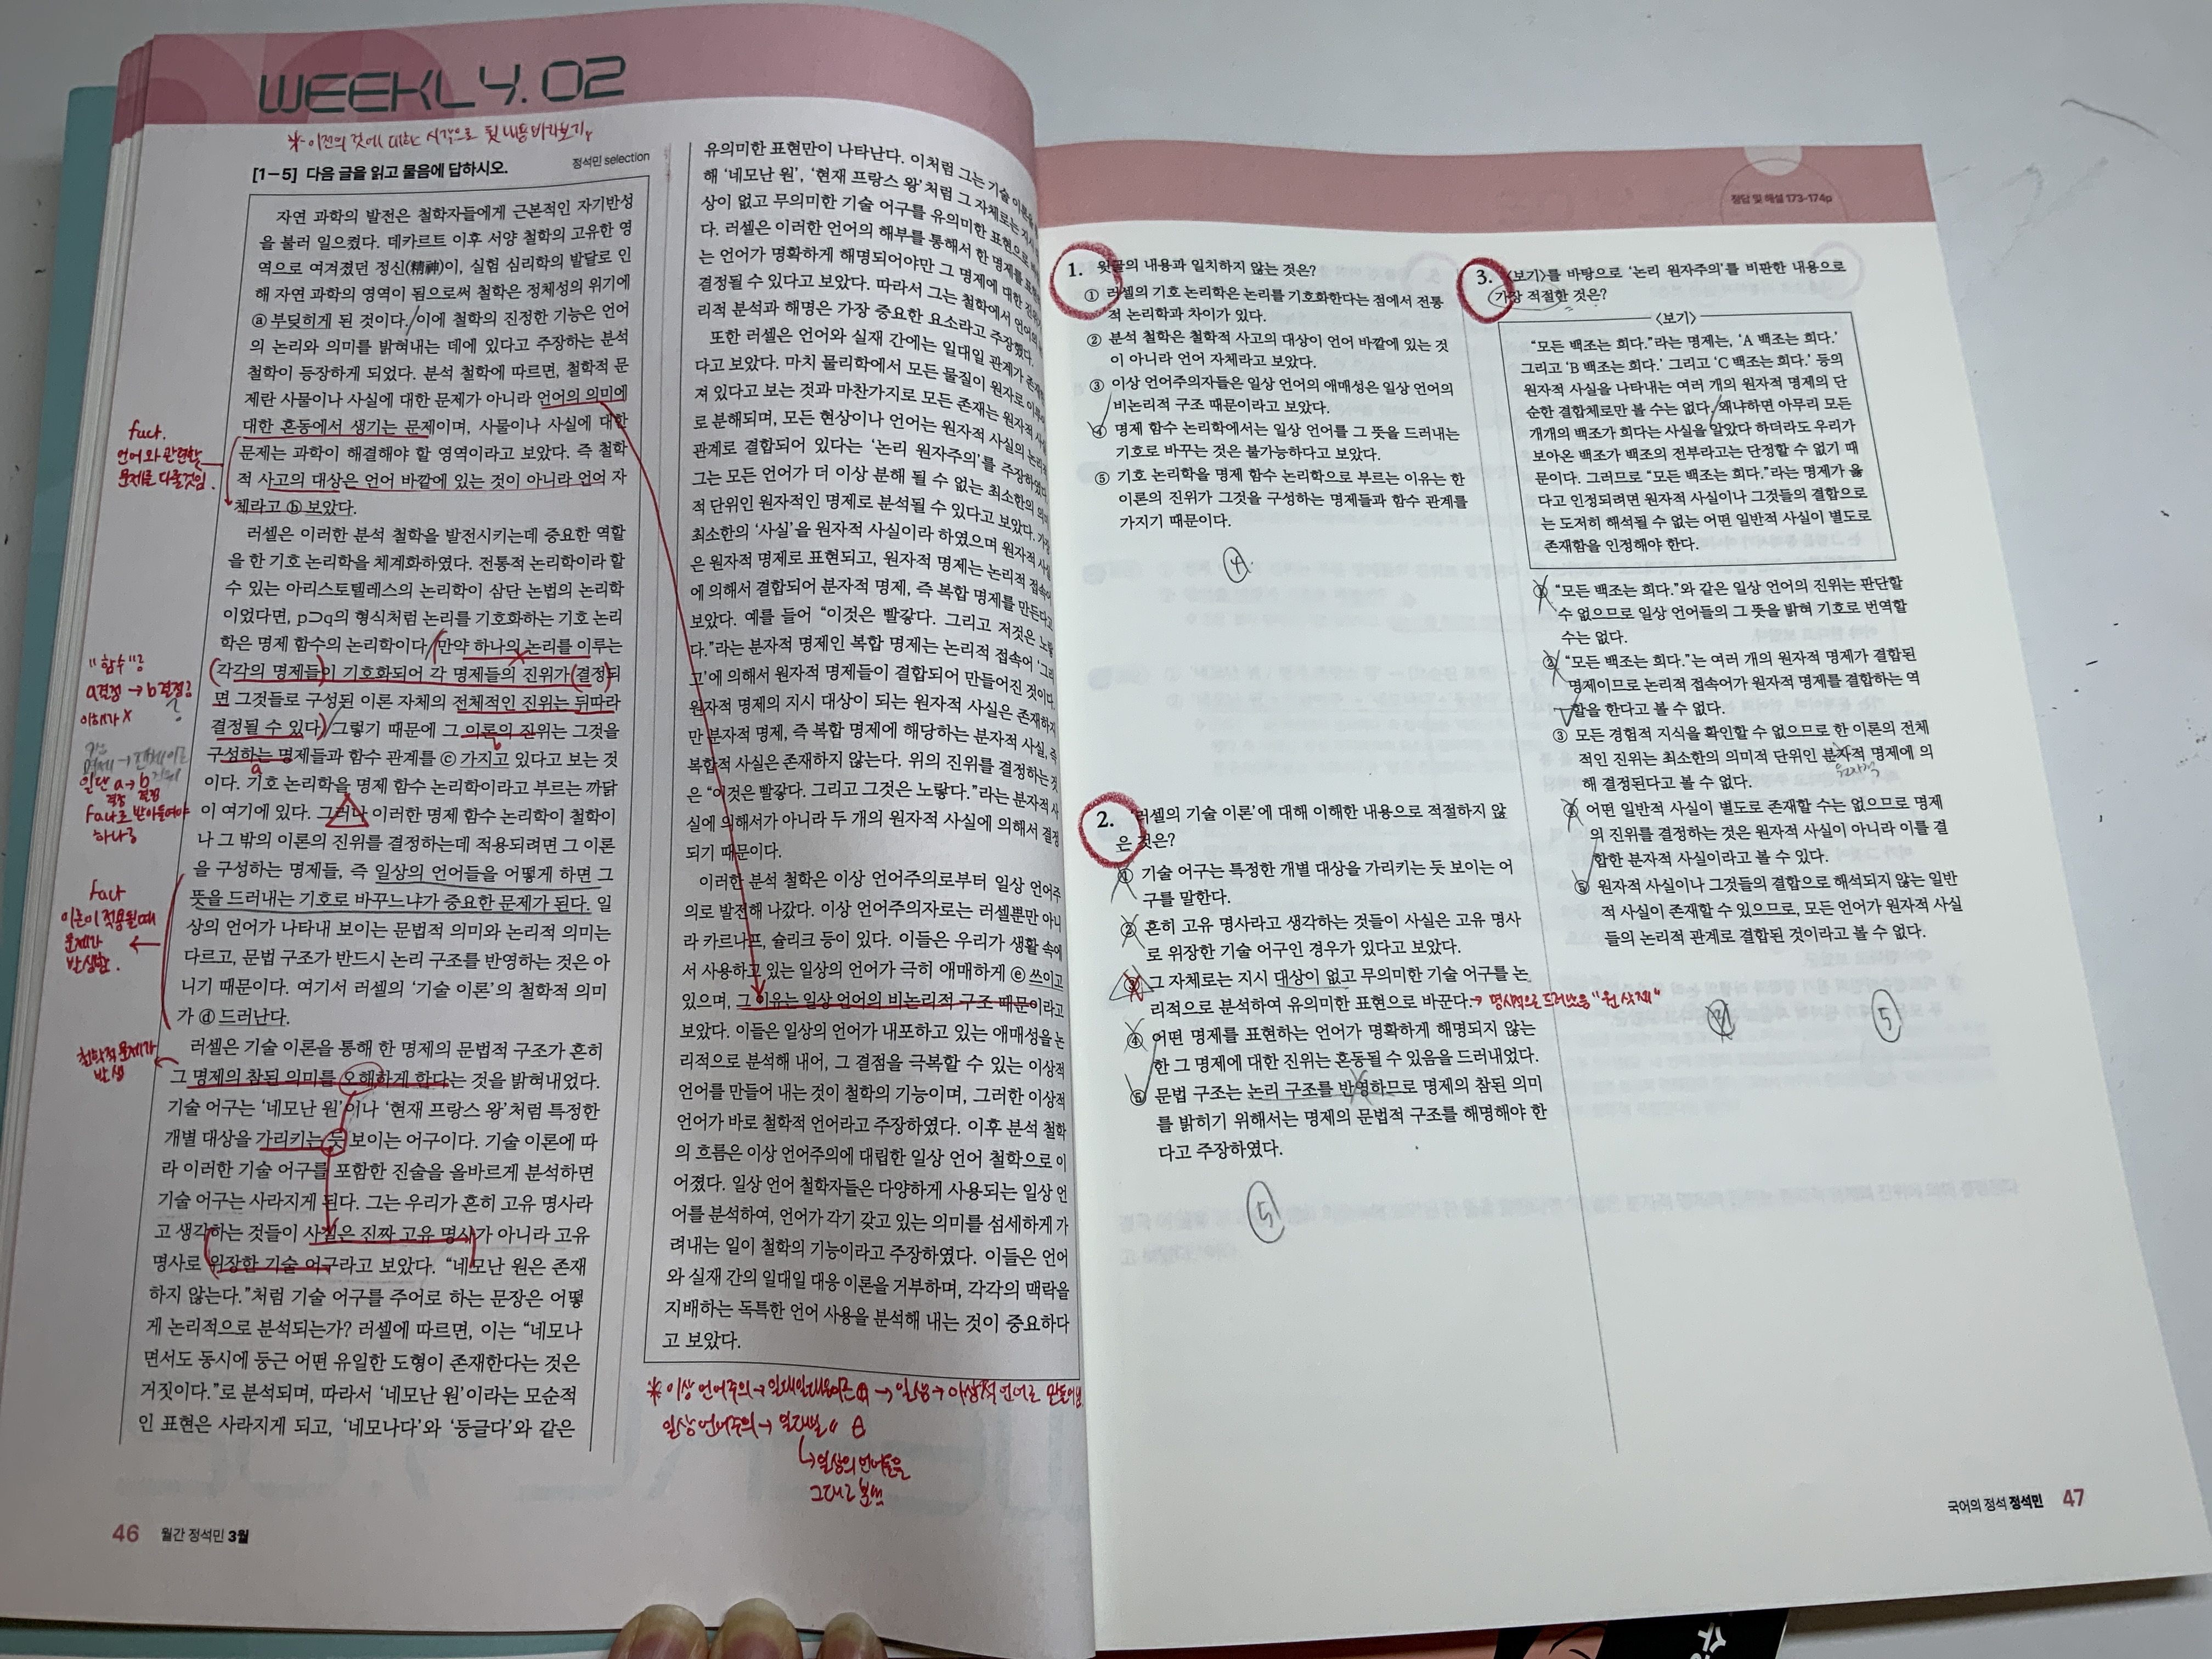 WEEKLY. 02
* 이전의 것에 대한 시각으로 뒷 내용 바라보기
[1-5] 다음 글을 읽고 물음에 답하시오.
정석민 selection
자연 과학의 발전은 철학자들에게 근본적인 자기반성
을 불러 일으켰다. 데카르트 이후 서양 철학의 고유한 영
역으로 여겨졌던 정신(精神)이, 실험 심리학의 발달로 인
해 자연 과학의 영역이 됨으로써 철학은 정체성의 위기에
ⓐ 부딪히게 된 것이다. 이에 철학의 진정한 기능은 언어
의 논리와 의미를 밝혀내는 데에 있다고 주장하는 분석
철학이 등장하게 되었다. 분석 철학에 따르면, 철학적 문
제란 사물이나 사실에 대한 문제가 아니라 언어의 의미에
대한 혼동에서 생기는 문제이며, 사물이나 사실에 대한
문제는 과학이 해결해야 할 영역이라고 보았다. 즉 철학
적 사고의 대상은 언어 바깥에 있는 것이 아니라 언어 자
체라고 ⓑ 보았다.
fact.
언어와 관련한
문제를 다룰것임.
러셀은 이러한 분석 철학을 발전시키는데 중요한 역할
을 한 기호 논리학을 체계화하였다. 전통적 논리학이라 할
수 있는 아리스토텔레스의 논리학이 삼단 논법의 논리학
이었다면, p⊃q의 형식처럼 논리를 기호화하는 기호 논리
학은 명제 함수의 논리학이다. 만약 하나의 논리를 이루는
각각의 명제들이 기호화되어 각 명제들의 진위가 결정되
면 그것들로 구성된 이론 자체의 전체적인 진위는 뒤따라
결정될 수 있다. 그렇기 때문에 그 이론의 진위는 그것을
구성하는 명제들과 함수 관계를 ⓒ 가지고 있다고 보는 것
이다. 기호 논리학을 명제 함수 논리학이라고 부르는 까닭
이 여기에 있다. 그러나 이러한 명제 함수 논리학이 철학이
나 그 밖의 이론의 진위를 결정하는데 적용되려면 그 이론
을 구성하는 명제들, 즉 일상의 언어들을 어떻게 하면 그
뜻을 드러내는 기호로 바꾸느냐가 중요한 문제가 된다. 일
상의 언어가 나타내 보이는 문법적 의미와 논리적 의미는
다르고, 문법 구조가 반드시 논리 구조를 반영하는 것은 아
니기 때문이다. 여기서 러셀의 ‘기술 이론’의 철학적 의미
가 ⓓ 드러난다.
"함수"?
a결정 → b결정?
이해가 X
일단 a→b
결정 결정
fact로 받아들여야
하나?
fact
이론이 적용될때
문제가
발생함.
철학적 문제가
발생
러셀은 기술 이론을 통해 한 명제의 문법적 구조가 흔히
그 명제의 참된 의미를 오해하게 한다는 것을 밝혀내었다.
기술 어구는 ‘네모난 원’이나 ‘현재 프랑스 왕’처럼 특정한
개별 대상을 가리키는 듯 보이는 어구이다. 기술 이론에 따
라 이러한 기술 어구를 포함한 진술을 올바르게 분석하면
기술 어구는 사라지게 된다. 그는 우리가 흔히 고유 명사라
고 생각하는 것들이 사실은 진짜 고유 명사가 아니라 고유
명사로 위장한 기술 어구라고 보았다. “네모난 원은 존재
하지 않는다.”처럼 기술 어구를 주어로 하는 문장은 어떻
게 논리적으로 분석되는가? 러셀에 따르면, 이는 “네모나
면서도 동시에 둥근 어떤 유일한 도형이 존재한다는 것은
거짓이다.”로 분석되며, 따라서 ‘네모난 원’이라는 모순적
인 표현은 사라지게 되고, ‘네모나다’와 ‘둥글다’와 같은
유의미한 표현만이 나타난다. 이처럼 그는 기술 이론을
해 ‘네모난 원’, ‘현재 프랑스 왕’처럼 그 자체로는 지시
상이 없고 무의미한 기술 어구를 유의미한 표현으로
다. 러셀은 이러한 언어의 해부를 통해서 한 명제를
는 언어가 명확하게 해명되어야만 그 명제에 대한
결정될 수 있다고 보았다. 따라서 그는 철학에서 언어의
리적 분석과 해명은 가장 중요한 요소라고 주장했다.
또한 러셀은 언어와 실재 간에는 일대일 관계가
다고 보았다. 마치 물리학에서 모든 물질이 원자로
져 있다고 보는 것과 마찬가지로 모든 존재는 원자적
로 분해되며, 모든 현상이나 언어는 원자적 사실의 논리적
관계로 결합되어 있다는 ‘논리 원자주의’를 주장하였다.
그는 모든 언어가 더 이상 분해 될 수 없는 최소한의 의미
적 단위인 원자적인 명제로 분석될 수 있다고 보았다. 가장
최소한의 ‘사실’을 원자적 사실이라 하였으며 원자적 사실
은 원자적 명제로 표현되고, 원자적 명제는 논리적 접속어
에 의해서 결합되어 분자적 명제, 즉 복합 명제를 만든다고
보았다. 예를 들어 “이것은 빨갛다. 그리고 저것은 노랗
다.”라는 분자적 명제인 복합 명제는 논리적 접속어 ‘그리
고’에 의해서 원자적 명제들이 결합되어 만들어진 것이다.
원자적 명제의 지시 대상이 되는 원자적 사실은 존재하지
만 분자적 명제, 즉 복합 명제에 해당하는 분자적 사실, 즉
복합적 사실은 존재하지 않는다. 위의 진위를 결정하는 것
은 “이것은 빨갛다. 그리고 그것은 노랗다.”라는 분자적 사
실에 의해서가 아니라 두 개의 원자적 사실에 의해서 결정
되기 때문이다.
이러한 분석 철학은 이상 언어주의로부터 일상 언어주
의로 발전해 나갔다. 이상 언어주의자로는 러셀뿐만 아니
라 카르나프, 슐리크 등이 있다. 이들은 우리가 생활 속에
서 사용하고 있는 일상의 언어가 극히 애매하게 ⓔ 쓰이고
있으며, 그 이유는 일상 언어의 비논리적 구조 때문이라고
보았다. 이들은 일상의 언어가 내포하고 있는 애매성을 논
리적으로 분석해 내어, 그 결점을 극복할 수 있는 이상적
언어를 만들어 내는 것이 철학의 기능이며, 그러한 이상적
언어가 바로 철학적 언어라고 주장하였다. 이후 분석 철학
의 흐름은 이상 언어주의에 대립한 일상 언어 철학으로 이
어졌다. 일상 언어 철학자들은 다양하게 사용되는 일상 언
어를 분석하여, 언어가 각기 갖고 있는 의미를 섬세하게 가
려내는 일이 철학의 기능이라고 주장하였다. 이들은 언어
와 실재 간의 일대일 대응 이론을 거부하며, 각각의 맥락을
지배하는 독특한 언어 사용을 분석해 내는 것이 중요하다
고 보았다.
* 이상 언어주의 → 일대일대응이론 ⊕ → 일상 → 이상적 언어로 만들어냄
일상 언어주의 → 일대일 〃 ⊖
↳ 일상의 언어들을
그대로 분석
46 월간 정석민 3월
정답 및 해설 173-174p
1. 윗글의 내용과 일치하지 않는 것은?
① 러셀의 기호 논리학은 논리를 기호화한다는 점에서 전통
적 논리학과 차이가 있다.
② 분석 철학은 철학적 사고의 대상이 언어 바깥에 있는 것
이 아니라 언어 자체라고 보았다.
③ 이상 언어주의자들은 일상 언어의 애매성은 일상 언어의
비논리적 구조 때문이라고 보았다.
④ 명제 함수 논리학에서는 일상 언어를 그 뜻을 드러내는
기호로 바꾸는 것은 불가능하다고 보았다.
⑤ 기호 논리학을 명제 함수 논리학으로 부르는 이유는 한
이론의 진위가 그것을 구성하는 명제들과 함수 관계를
가지기 때문이다.
④
2. ‘러셀의 기술 이론’에 대해 이해한 내용으로 적절하지 않
은 것은?
① 기술 어구는 특정한 개별 대상을 가리키는 듯 보이는 어
구를 말한다.
② 흔히 고유 명사라고 생각하는 것들이 사실은 고유 명사
로 위장한 기술 어구인 경우가 있다고 보았다.
③ 그 자체로는 지시 대상이 없고 무의미한 기술 어구를 논
리적으로 분석하여 유의미한 표현으로 바꾼다. → 명시적으로 드러났음 "원 삭제"
④ 어떤 명제를 표현하는 언어가 명확하게 해명되지 않는
한 그 명제에 대한 진위는 혼동될 수 있음을 드러내었다.
⑤ 문법 구조는 논리 구조를 반영하므로 명제의 참된 의미
를 밝히기 위해서는 명제의 문법적 구조를 해명해야 한
다고 주장하였다.
⑤
3. 〈보기〉를 바탕으로 ‘논리 원자주의’를 비판한 내용으로
가장 적절한 것은?
〈보기〉
“모든 백조는 희다.”라는 명제는, ‘A 백조는 희다.’
그리고 ‘B 백조는 희다.’ 그리고 ‘C 백조는 희다.’ 등의
원자적 사실을 나타내는 여러 개의 원자적 명제의 단
순한 결합체로만 볼 수는 없다. 왜냐하면 아무리 모든
개개의 백조가 희다는 사실을 알았다 하더라도 우리가
보아온 백조가 백조의 전부라고는 단정할 수 없기 때
문이다. 그러므로 “모든 백조는 희다.”라는 명제가 옳
다고 인정되려면 원자적 사실이나 그것들의 결합으로
는 도저히 해석될 수 없는 어떤 일반적 사실이 별도로
존재함을 인정해야 한다.
① “모든 백조는 희다.”와 같은 일상 언어의 진위는 판단할
수 없으므로 일상 언어들의 그 뜻을 밝혀 기호로 번역할
수는 없다.
② “모든 백조는 희다.”는 여러 개의 원자적 명제가 결합된
명제이므로 논리적 접속어가 원자적 명제를 결합하는 역
할을 한다고 볼 수 없다.
③ 모든 경험적 지식을 확인할 수 없으므로 한 이론의 전체
적인 진위는 최소한의 의미적 단위인 분자적 명제에 의
해 결정된다고 볼 수 없다.
원자적
④ 어떤 일반적 사실이 별도로 존재할 수는 없으므로 명제
의 진위를 결정하는 것은 원자적 사실이 아니라 이를 결
합한 분자적 사실이라고 볼 수 있다.
⑤ 원자적 사실이나 그것들의 결합으로 해석되지 않는 일반
적 사실이 존재할 수 있으므로, 모든 언어가 원자적 사실
들의 논리적 관계로 결합된 것이라고 볼 수 없다.
⑤
국어의 정석 정석민 47